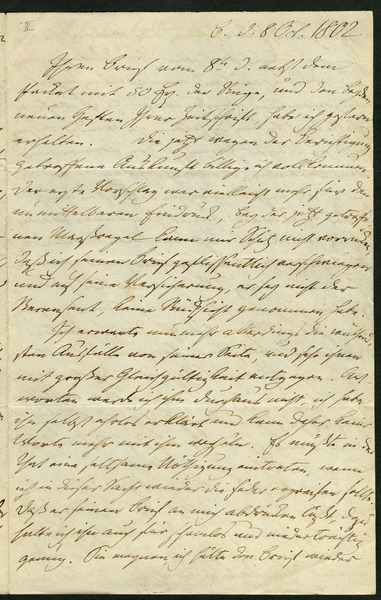 II
B. d. 8 Oct. 1802
Ihren Brief vom 8ten d. nebst dem
Packet mit 50 der Züge, und den beyden
neuen Heften Ihrer Zeitschrift, habe ich gestern
erhalten. Die jetzt wegen der Berichtigung
getroffene Auskunft billige ich vollkommen.
Der erste Vorschlag war vielleicht mehr für den
unmittelbaren Eindruck, bey der jetzt getroffe
nen Maaßregel kann mir Schütz nicht vorwerfen
daß ich seinen Brief geflissentlich verschwiegen
und auf seine Versicherung, er sey nicht der
Recensent, keine Rücksicht genommen habe.
Ich erwarte nunmehr allerdings die
sten Ausfälle von seiner Seite, und sehe ihnen
mit großer Gleichgültigkeit entgegen. Ant
worten werde ich ihm durchaus nicht, ich habe
ihn selbst ehrlos erklärt und kann daher keine
Worte mehr mit ihm wechseln. Es müßte in der
That eine seltsame Nöthigung eintreten, wenn
ich in dieser Sache wieder die Feder ergreifen sollte.
Daß er seinen Brief an mich abdrucken läßt, dazu
halte ich ihn auch für schamlos und niederträchtig
genug. Sie meynen ich hätte den Brief wieder